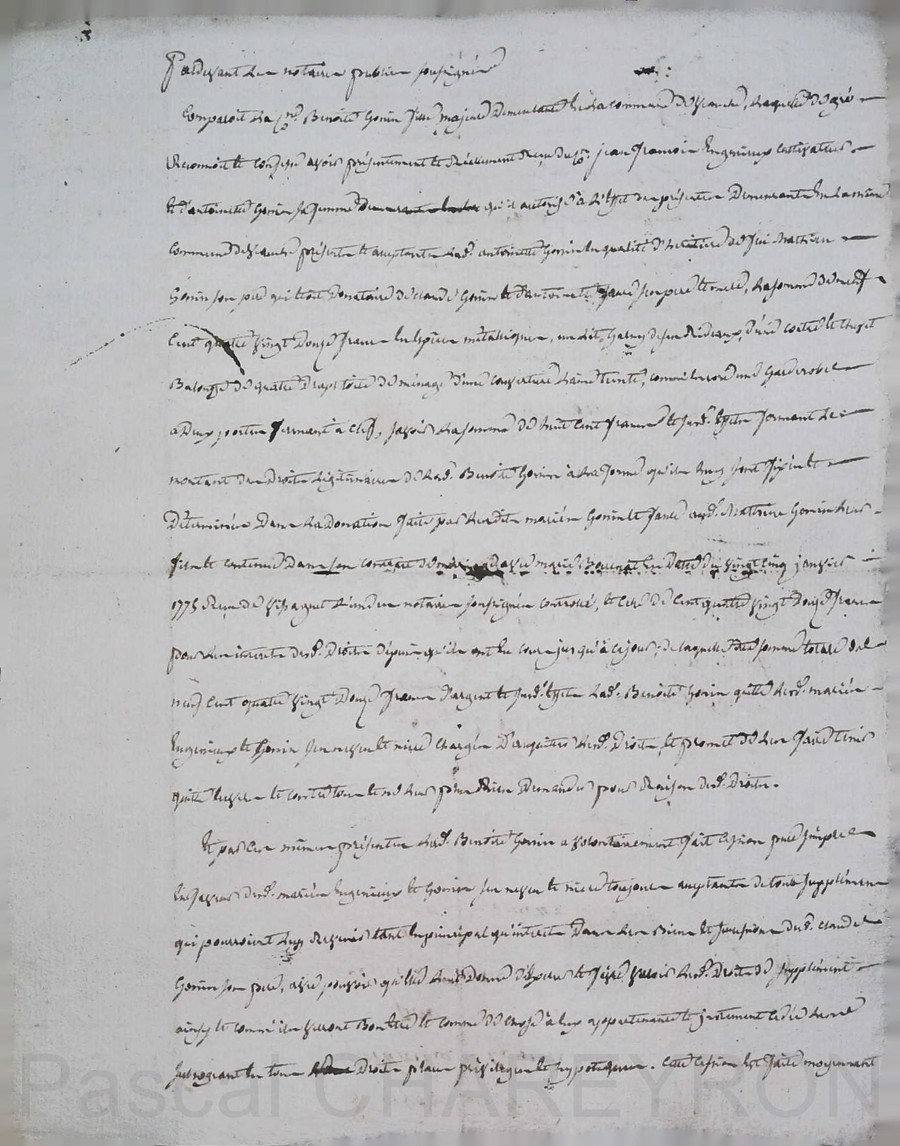 Pardevant les notaires publics soussignés
Comparoit la Cne Benoite Gonin fille majeure demeurante en la commune d'Escande, laquelle de gré
reconnoit et confesse avoir présentement et réellement reçu du Cn. jean francois Engenieux cultivateur
et d'antoinette Gonin sa femme qu'il autorise à l'effet des présentes demeurants en la même
commune présents et acceptants lad. antoinette Gonin en qualité d'héritière de feu Mathieu
Gonin son père qui étoit donataire de claude Gonin et d'antoinette ses père et mère, la somme de neuf
Cent quatre vingt Douze francs en espèces métalliques, un lit garni de ses rideaux, d'une coëtre et chevet
de quatre draps toile de ménage d'une couverture laine teinte, comm' encore d'une Garderobe
a Deux portes fermant à clef, savoir la somme de huit cent francs et susd. effets formant le
montant des Droits légitimaires de lad. Benoite Gonin à la forme qu'ils luy sont fixés et
Déterminés Dans la Donation faite par lesdits mariés Gonin et aud. Mathieu Gonin leur
fils et contenue dans son contrat de mariage avec marie en Date du vingt cinq janvier
1775 reçu l'un des notaires soussignés controlé, et celle de cent quatre vingt Douze francs
pour les interets desd. Droits depuis qu'ils ont eu cours jusqu'à ce jour; de laquelle somme totale de
neuf Cent quatre vingt Douze francs d'argent et susd. effets lad. Benoite Gonin quitte lesd. mariés
Engenieux et Gonin ses neveu et nièce chargés d'acquitter lesd. Droits, et promet de les faire tenir
quittes envers et contre tous et ne leur plus rien Demander pour raison desd. Droits.
Et par ces mêmes présentes lad. Benoite Gonin a volontairement fait cession pure simple
en faveur desd. mariés Engenieux et Gonin ses neveu et nièce toujours acceptants de tous suppléments
qui pourroient luy revenir tant en principal qu'interets Dans les Biens et succession dud. claude
Gonin son père, avec pouvoir qu'elle leur Donne d'exiger et faire valoir lesd. Droits de supplément
ainsy et comm' ils verront Bon être et comme de chose à eux appartenante et justement cédée les
subrogeant en tous Droits places privilèges et hypotèques. Cette cession est faite moyennant
Pascal CHAREYRON